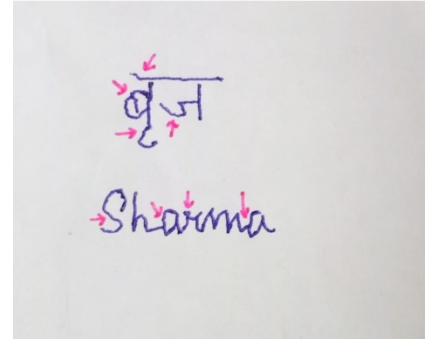 बृज
Sharma